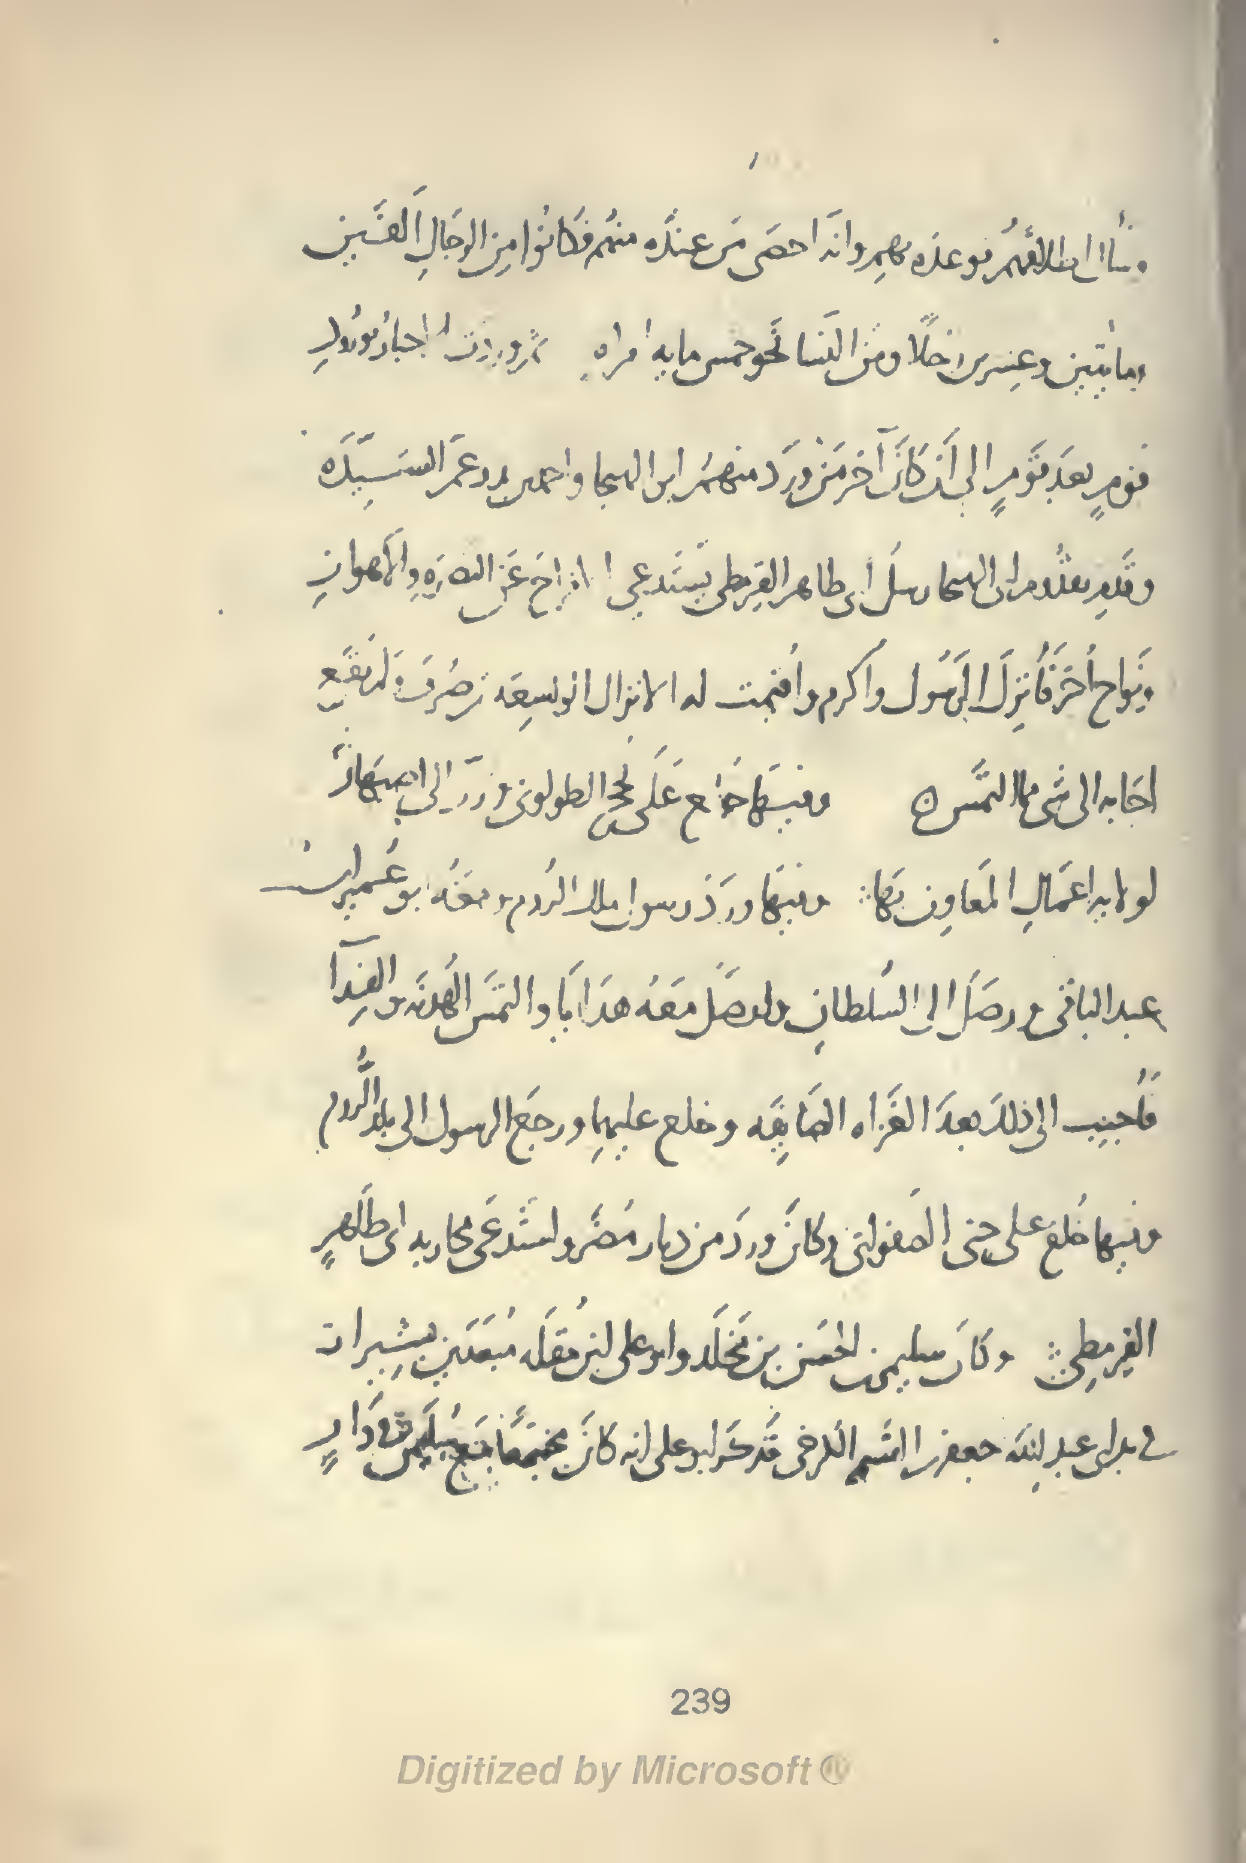 وسأل اطلاقهم فوعده بهم وانه احصى من عنده منهم فكانوا من الرجال الفين
ومائتين وعشرين رجلا ومن النسا نحو خمس مايه امراه ثم وردت الاخبار بورود
قوم بعد قوم الى ان كان آخر من ورد منهم ابو الهيجا واحمد بن بدر عم السيده
وقدم بعقدوم ابى الهيجا رسل ابى طاهر القرمطى يستدعى الافراج عن البصره والاهواز
ونواح أخر فانزل الرسول واكرم واقيمت له الانزال الواسعه ثم صرف ولم يقع
اجابه الى شى مما التمس ه وفيها خلع على نجح الطولونى ورد الى اصبهان
لولايه اعمال المعاون بها وفيها ورد رسول ملك الروم ومعه ابو عمير ابن
عبد الباقى ووصل الى السلطان واوصل معه هدايا والتمس الهدنه والفدآ
فأجيب الى ذلك بعد الغزاه الصايفه وخلع عليهما ورجع الرسول الى بلد الروم
وفيها خلع على جنى الصفوانى وكان ورد من ديار مضر واستدعى لمحاربه ابى طاهر
القرمطى وكان سليمن بن الحسن بن مخلد وابو على بن مقله مبعدين بشيراز
فى يد ابى عبد الله جعفر بن القسم الكرخى فذكر ابو على انه كان مجتمعا مع سليمن فى دار
239
Digitized by Microsoft ®